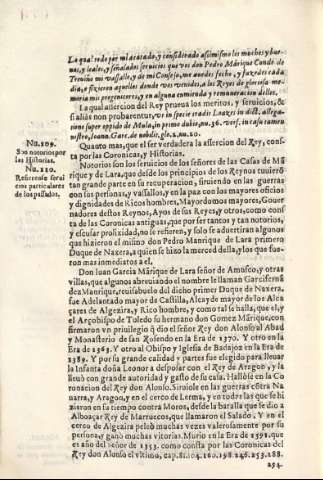 Lo qual todo por mi acatado, y considerado assimismo los muchos, y bue-
nos, y leales, y señalados seruicios que vos don Pedro Mārique Conde de
Treuiño mi vassallo, y de mi Consejo, me auedes fecho, y fazedes cada
dia, e fizieron aquellos donde vos venides, a los Reyes de gloriosa me-
moria mis progenitores, y en alguna enmienda y remuneracion dellos.
La qual assercion del Rey prueua los meritos, y seruicios, &
si aliàs non probarentur, vt in specie tradit
supper oppido de Mula, in primo dubio, nu. 36. versf. in casu tamen
nostro, Ioann. Gare. de nobilit. gl. 2. nu. 20.
Quanto mas, que el ser verdadera la assercion del Rey, cons-
ta por las Coronicas, y Historias.
Nu. 109.
Son notorios por
las Historias.
Nu. 110.
Refierense serui
cios particulares
de los passados.
Notorios son los seruicios de los señores de las Casas de Mā
rique y de Lara, que desde los principios de los Reynos tuuierō
tan grande parte en su recuperacion, siruiendo en las guerras
con sus personas, y vassallos, y en la paz con los mayores oficios
y dignidades de Ricos hombres, Mayordomos mayores, Gouer
nadores destos Reynos, Ayos de sus Reyes, y otros, como cons
ta de las Coronicas antiguas, que por ser tantos y tan notorios,
y escusar prolixidad, no se refieren, y solo se aduertiran algunos
que hizieron el mismo don Pedro Manrique de Lara primero
Duque de Naxera, a quien se hizo la merced della, y los que fue-
ron mas inmediatos a el.
Don Iuan Garcia Mārique de Lara señor de Amusco, y otras
villas, que algunos abreuiando el nombre le llaman Garcifernā
dez Manrique, reuisabuelo del dicho primer Duque de Naxera,
fue Adelantado mayor de Castilla, Alcayde mayor de los Alca
çares de Algezira, y Rico hombre, y como tal se halla, que el, y
el Arçobispo de Toledo su hermano don Gomez Mārique, con-
firmaron vn priuilegio q̄ dio el señor Rey don Alonso al Abad
y Monasterio de san Rosendo en la Era de 1370. Y otro en la
Era de 1363. Y otro al Obispo y Iglesia de Badajoz en la Era de
1389. Y por su grande calidad y partes fue elegido para lleuar
la Infanta doña Leonor a desposar con el Rey de Aragon, y la
lleuò con grande autoridad y gasto de su casa. Hallòse en la Co
ronacion del Rey don Alonso. Siruiole en las guerras cōtra Na
uarra, y Aragon, y en el cerco de Lerma, y en todas las que se hi
zieron en su tiempo contra Moros, desde la batalla que se dio a
Alboaçar Rey de Marruecos, que llamaron el Salado. Y en el
cerco de Algezira peleò muchas vezes valerosamente por su
persona, y ganò muchas vitorias. Murio en la Era de 1391. que
es año del señor de 1353. como consta por las Coronicas del
Rey don Alonso el vltimo, cap. 81. 104. 180. 198. 246. 253. 288.
294.